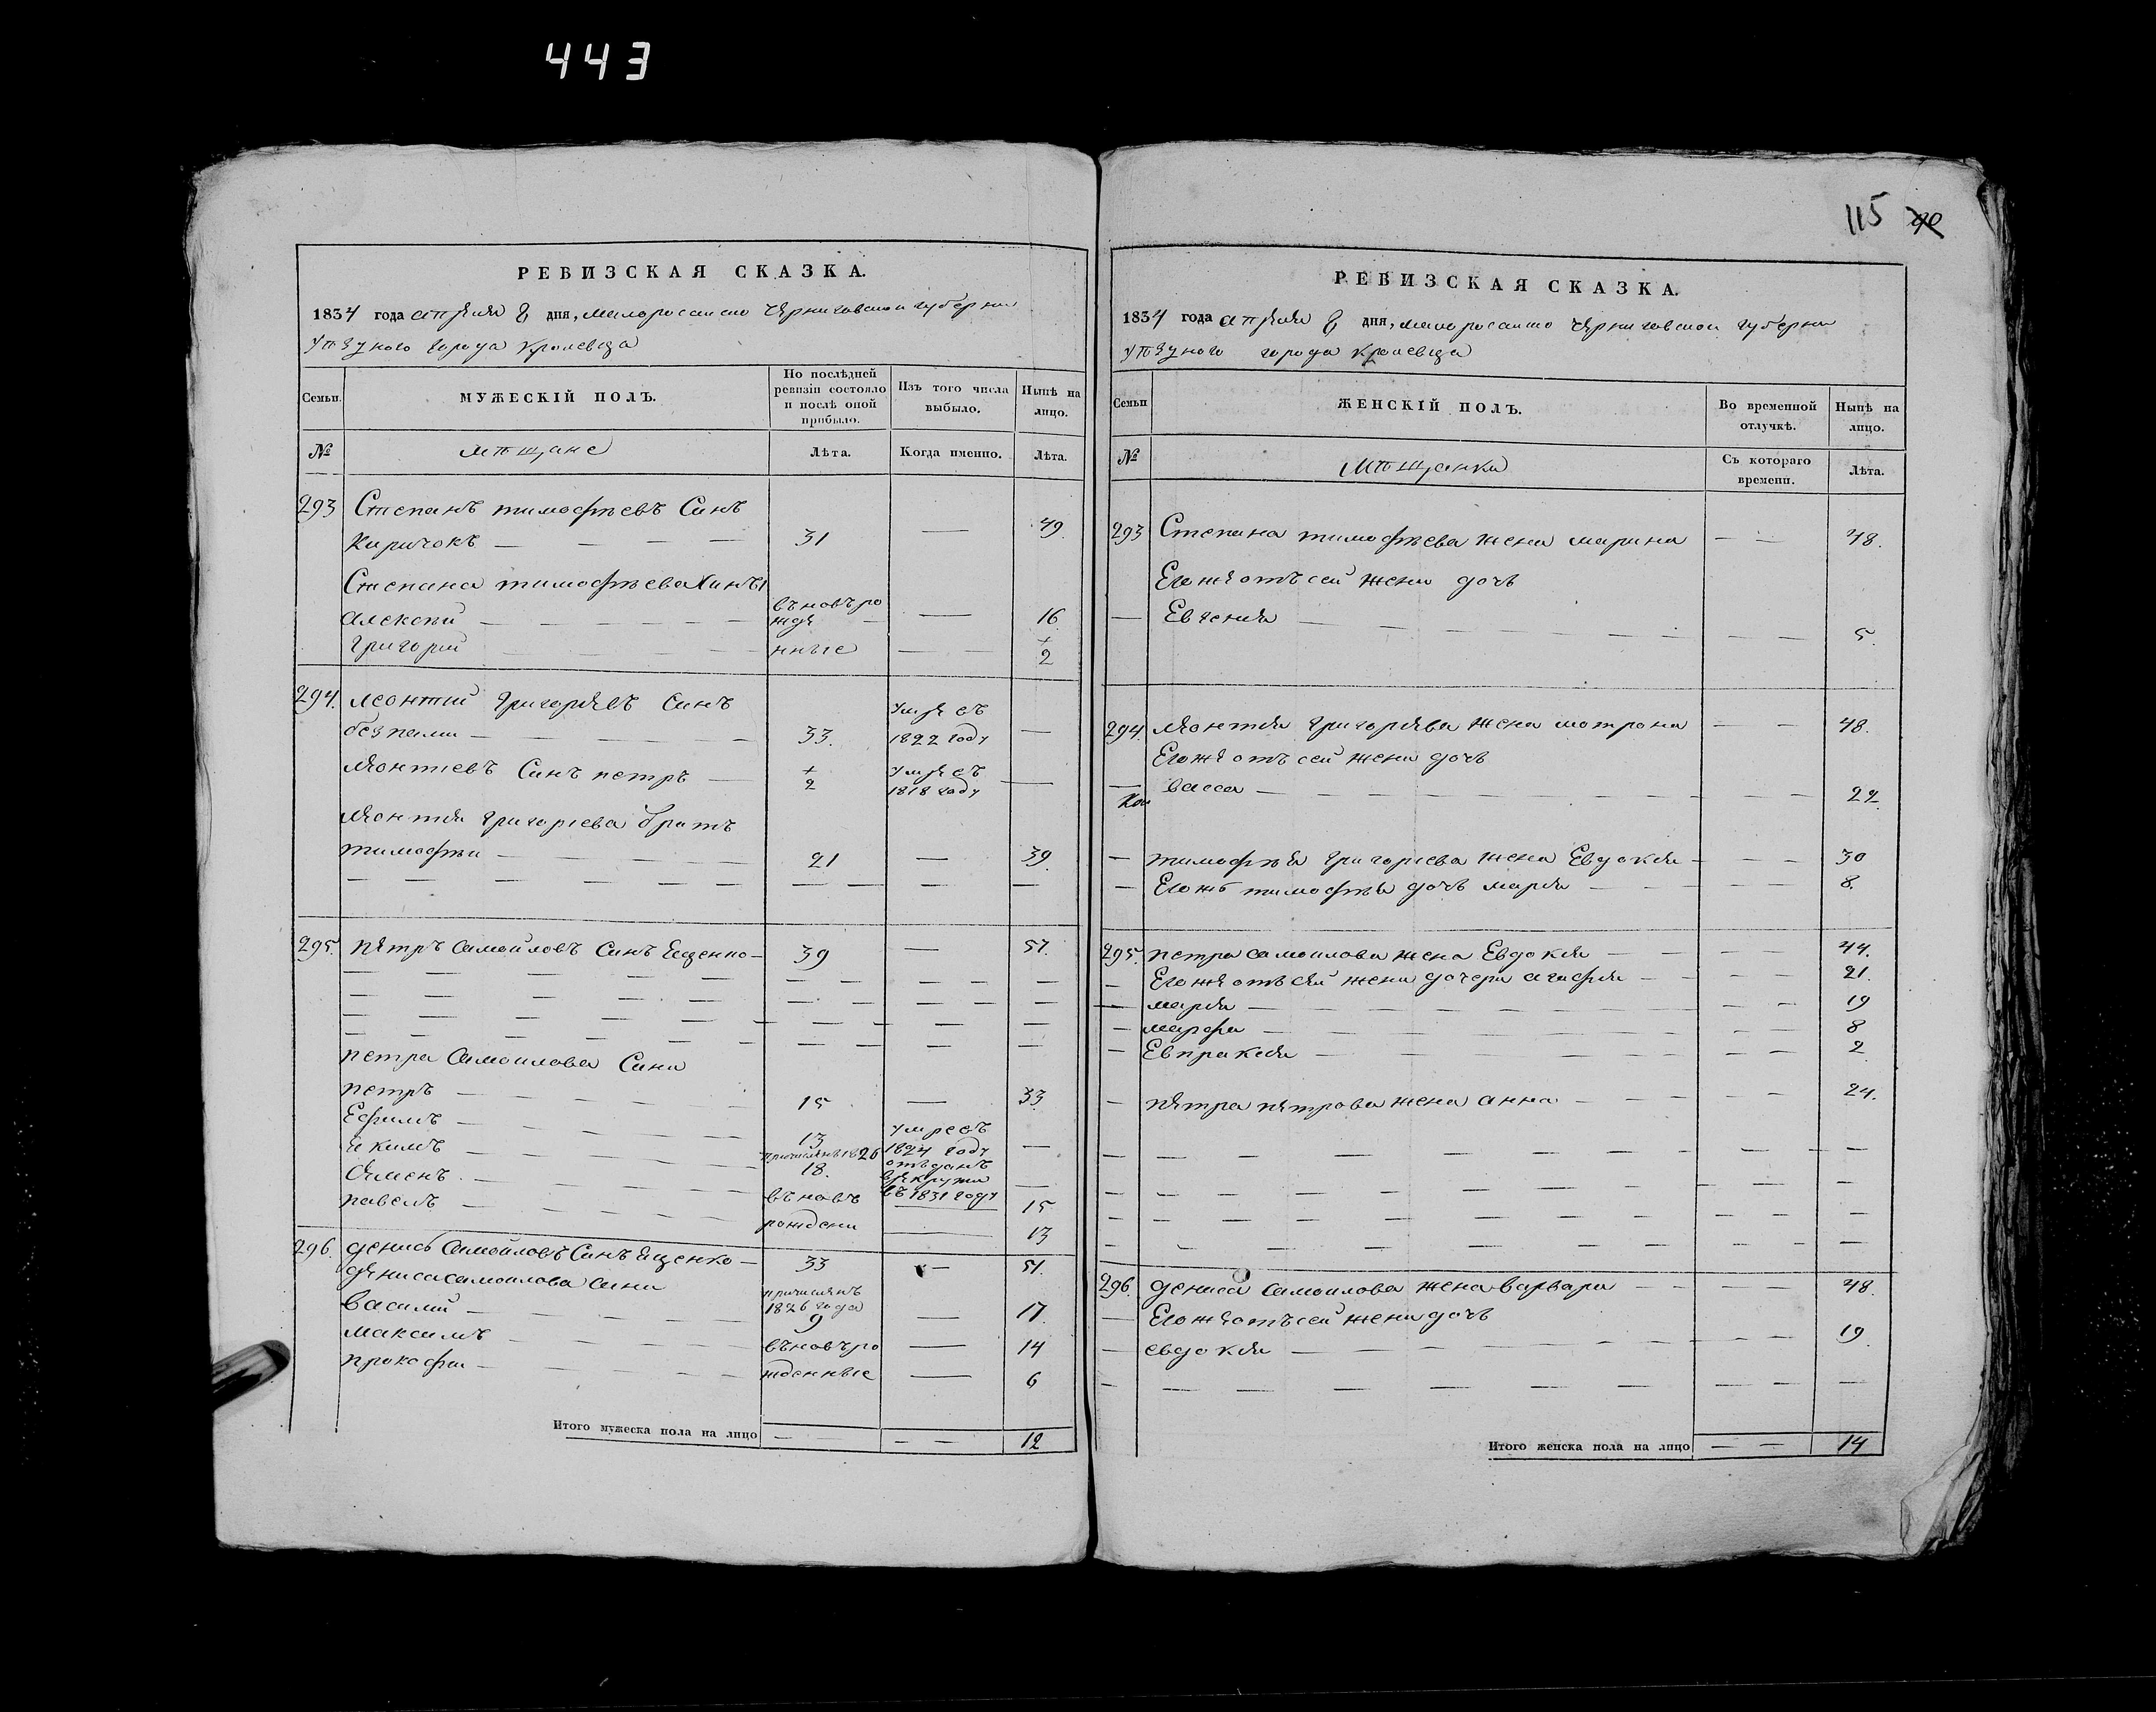 443
115
РЕВИЗСКАЯ СКАЗКА.
1834 года апреля 8 дня, малоросийско Черниговской губернии
уѣзного города Кролевца
Семьи.
МУЖЕСКІЙ ПОЛЪ.
По послѣдней ревизіи состояло и послѣ оной прибыло.
Изъ того числа выбыло.
Нынѣ на лицо.
№
мѣщане
Лѣта.
Когда именно.
Лѣта.
293 Степанъ тимофѣевъ Синъ
Киричокъ — 31 — 49.
Степана тимофѣева Сины
Алексѣй — въновъ рожде — 16.
Григорий — нные — 1/2
294. леонтий Григориевъ Синъ
33. умре въ 1822 году —
леонтиевъ Синъ петръ — 1/2 умре въ 1818 году —
леонтия григориева братъ
тимофѣй — 21 — 39.
295. петръ Самойловъ Синъ Ященко — 39 — 57.
петра Самоилова Сини
петръ — 15 — 33.
Ефимъ — 13 умре въ 1824 году —
Якимъ — причисленъ 1826 18. отъданъ врекрути въ 1831 году —
Семенъ — въновъ 15
павелъ — рождени — 13
296. денисъ Самойловъ Синъ Ященко — 33 — 51.
дениса самоилова сини
василий — причисленъ 1826 года 9 — 17.
максимъ — въновъ ро — 14
прокофи — жденные — 6
Итого мужеска пола на лицо — — — — 12
РЕВИЗСКАЯ СКАЗКА.
1834 года апреля 8 дня, малоросийско Черниговской губернии
уѣзного города Кролевца
Семьи
ЖЕНСКІЙ ПОЛЪ.
Во временной отлучкѣ.
Нынѣ на лицо.
№
Мѣщанки
Съ котораго времени.
Лѣта.
293 Степана тимофѣева жена марина — — 48.
Егоже отъ сей жени дочь
— Евгения — — 5.
294. леонтия григориева жена мотрона — — 48.
Егоже отъ сей жени дочь
— васса — — 22.
— тимофѣя григориева жена Евдокия — — 30
— Егожъ тимофѣя дочь мария — — 8.
295. петра самоилова жена Евдокия — — 44.
— Егоже отъ сей жени дочери агафия — — 21.
— мария — — 19
— марфа — — 8
— Евпраксия — — 2
— петра петрова жена анна — — 24.
296. дениса самоилова жена варвара — — 48.
— Егоже отъ сей жени дочь
— евдокия — — 19.
Итого женска пола на лицо — — 14